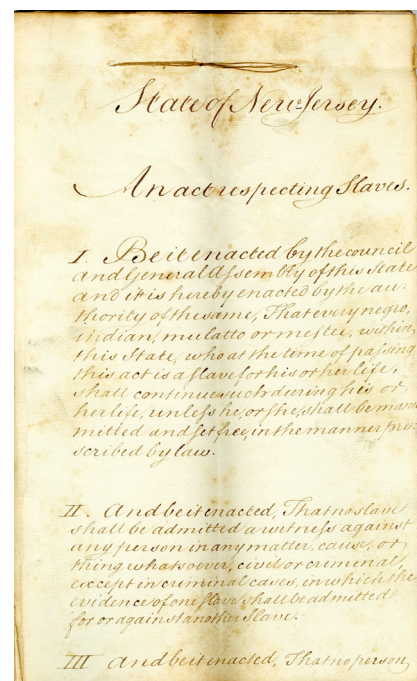 State of New-Jersey.
An act respecting Slaves.
I. Be it enacted by the council
and General Assembly of this State
and it is hereby enacted by the au-
thority of the same, That every negro,
indian, mulatto or mestee, within
this State, who at the time of passing
this act is a slave for his or her life,
shall continue such during his or
her life, unless he, or she, shall be manu
mitted and set free, in the manner pre-
scribed by law.
II. And be it enacted, That no slave
shall be admitted a witness against
any person in any matter, cause, or
thing whatsoever, civil or criminal,
except in criminal cases, in which the
evidence of one slave shall be admitted
for or against another slave.
III And be it enacted, That no person